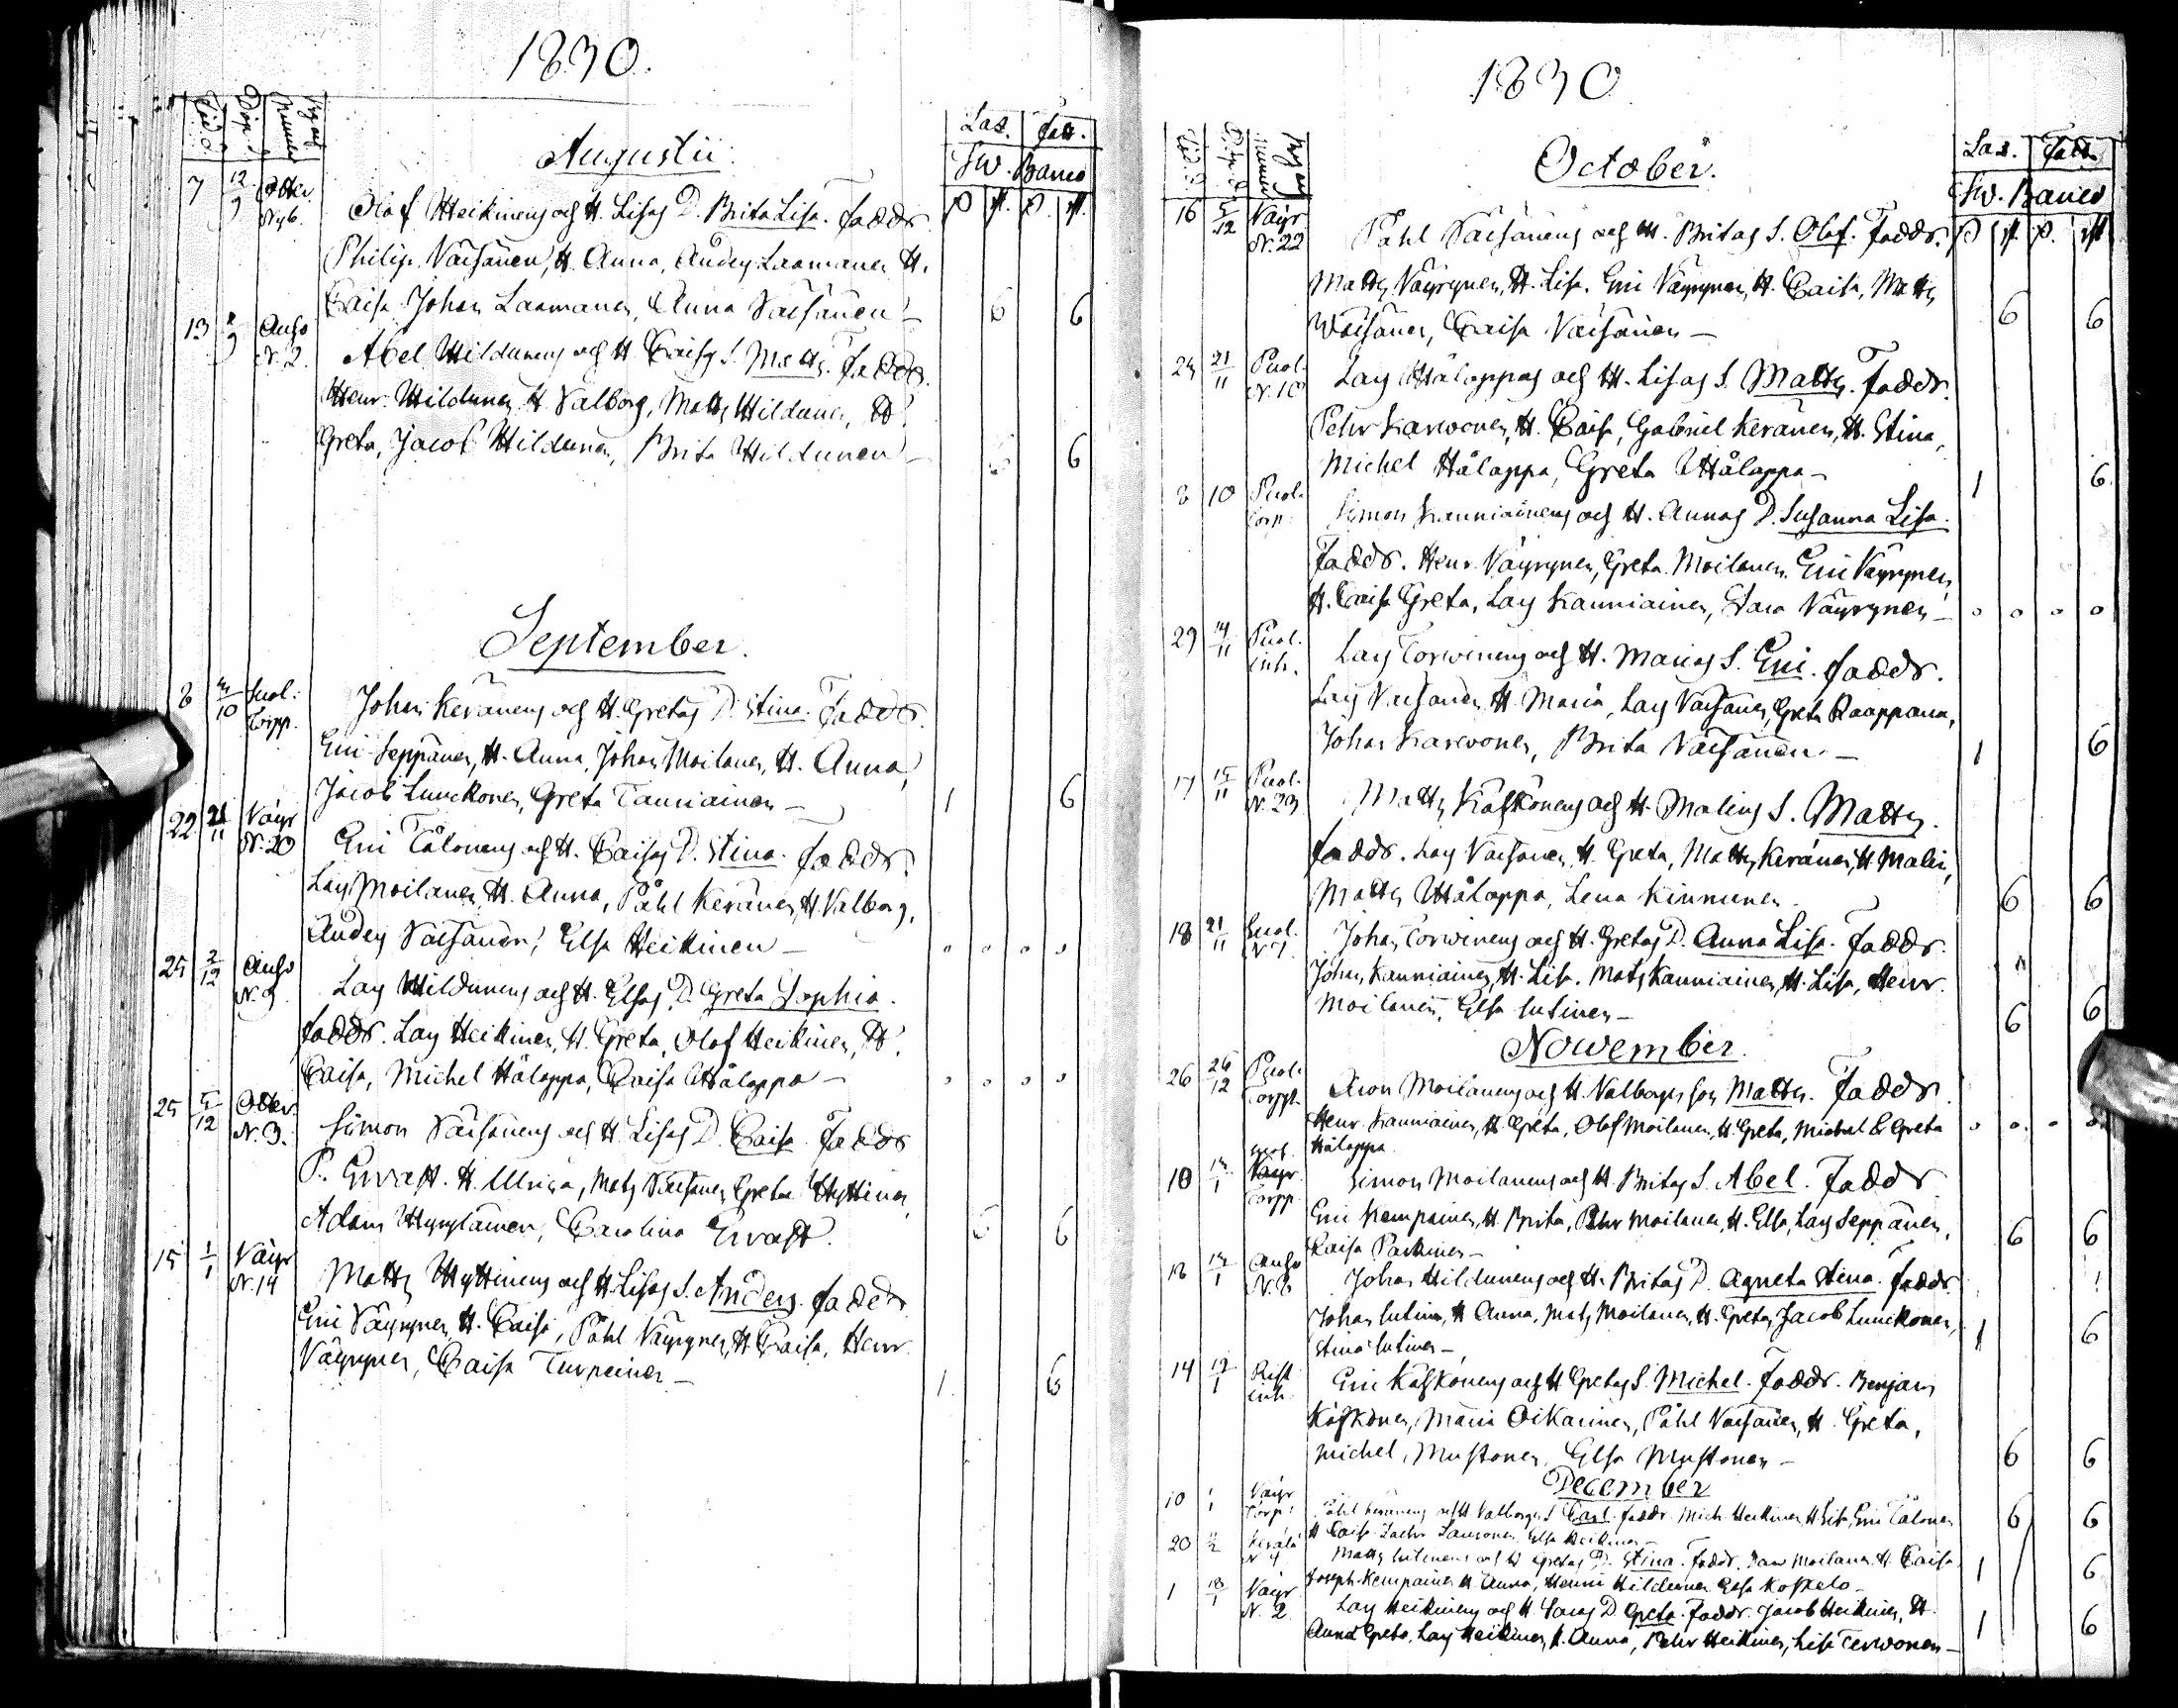 1830.
Las. Fatt.
Sw. Banco
Augustii.
7 12/9 Otter. N:6. Olof Heikinens och H. Lisas D. Brita Lisa. Faddr.
Philip Väisänen, H. Anna, Anders Laamanen H.
Caisa. Johan Laamanen, Anna Väisänen — 6 6
13 9 Anso N. 2. Abel Hildunens och H. Caisas S. Matts. Faddr.
Henr. Hildunen H. Valborg, Matts Hildunen, H.
Greta, Jacob Hildunen, Brita Hildunen — 6 6
September.
8 3/10 Suol. Torpp. Johan Keränens och H. Gretas D. Stina. Faddr.
Eric Seppänen, H. Anna, Johan Moilanen, H. Anna,
Jacob Lunckonen, Greta Tauriainen — 1 6
22 21/11 Väyr N. 20 Eric Tålonens och H. Caisas D. Stina. Faddr.
Lars Moilanen H. Anna, Påhl Keränen, H. Valborg,
Anders Väisänen, Elsa Heikinen —
25 2/12 Anso N. 9 Lars Hildunens och H. Elsas D. Greta Sophia.
Faddr. Lars Heikinen, H. Greta, Olof Heikinen, H.
Caisa, Michel Hålappa, Caisa Hålappa —
25 5/12 Otter. N. 3. Simon Väisänens och H. Lisas D. Caisa. Faddr
P. Ervast. H. Ulrica, Mats Väisänen Greta Hyttinen,
Adam Hyrylainen, Carolina Ervast. 6 6
15 1/1 Väyr N. 14 Matts Hyttinens och H. Lisas S. Anders. Faddr
Eric Väyrynen H. Caisa, Påhl Väyrynen, H. Caisa, Henr
Väyrynen, Caisa Turpeinen — 1 6
1830
Las. Fatt.
Sw. Banco
October.
16 5/12 Väyr N. 22 Påhl Väisänens och H. Britas S. Olof. Faddr.
Matts Väyrynen, H. Lisa. Eric Väyrynen, H. Caisa, Matts
Wäisänen, Caisa Väisänen — 6 6
24 21/11 Puol. N. 10 Lars Hålappas och H. Lisas S. Matts. Faddr.
Pehr Karwonen, H. Caisa, Gabriel Keränen, H. Stina,
Michel Hålappa, Greta Hålappa — 1 6
8 10 Puol. Torp. Simon Kauniainens och H. Annas D. Susanna Lisa.
Faddr. Henr. Väyrynen, Greta Moilanen. Eric Väyrynen,
H. Caisa Greta, Lars Kauniainen, Sara Väyrynen —
29 14/11 Puol. inh. Lars Torwinens och H. Marias S. Eric. Faddr.
Lars Väisänen H. Maria, Lars Väisänen, Greta Raappana,
Johan Karwonen, Brita Väisänen — 1 6
17 15/11 Puol. N. 23 Matts Käskönens och H. Malins S. Matts.
Faddr. Lars Väisänen, H. Greta, Matts Keränen, H. Malin,
Matts Hålappa, Lena Kinnunen. 6 6
18 21/11 Suol. N. 1 Johan Torwinens och H. Gretas D. Anna Lisa. Faddr.
Johan Kauniainen, H. Lisa. Mats Kauniainen, H. Lisa, Henr
Moilanen, Elsa Intinen — 6 6
Nowember.
26 26/12 Puol. Torppt. Aron Moilanens och H. Valborgs son Matts. Faddr.
Henr Kauniainen, H. Greta, Olof Moilanen, H. Greta, Michel & Greta
Hålappa.
18 Väyr. Torpp. Simon Moilanens och H. Britas S. Abel. Faddr
Eric Kempainen, H. Brita, Pehr Moilanen, H. Elsa, Lars Seppänen,
Kaisa Parkinen — 6 6
18 Anso N. 8 Johan Hildunens och H. Britas D. Agneta Stina. Faddr.
Johan Intinen, H. Anna, Mats Moilanen, H. Greta, Jacob Lunckonen,
Stina Intinen — 1 6
14 Rist. inh. Eric Käskönens och H Gretas S. Michel. Faddr. Benjam
Käskönen, Maria Oikarinen, Påhl Väisänen, H. Greta,
Michel Mustonen, Elsa Mustonen — 6 6
December
10 1/1 Väyr Torp. Påhl Keränens och H Valborgs S Carl. Faddr. Mich Heikinen, H Lisa, Eric Tålonen
H Caisa. Elsa Heikinen — 6 6
20 Kerälä N 4 Matts Intinens och H Gretas D. Stina. Faddr. Moilanen H. Caisa.
Joseph Kempainen H. Anna, Henric Hildunen Elsa Koskelo — 1 6
1 Väyr. N. 2. Lars Heikinens och H. Saras D. Greta. Faddr. Jacob Heikinen, H.
Anna Greta, Lars Heikinen, H. Anna, Pehr Heikinen, Lisa Terwonen — 1 6